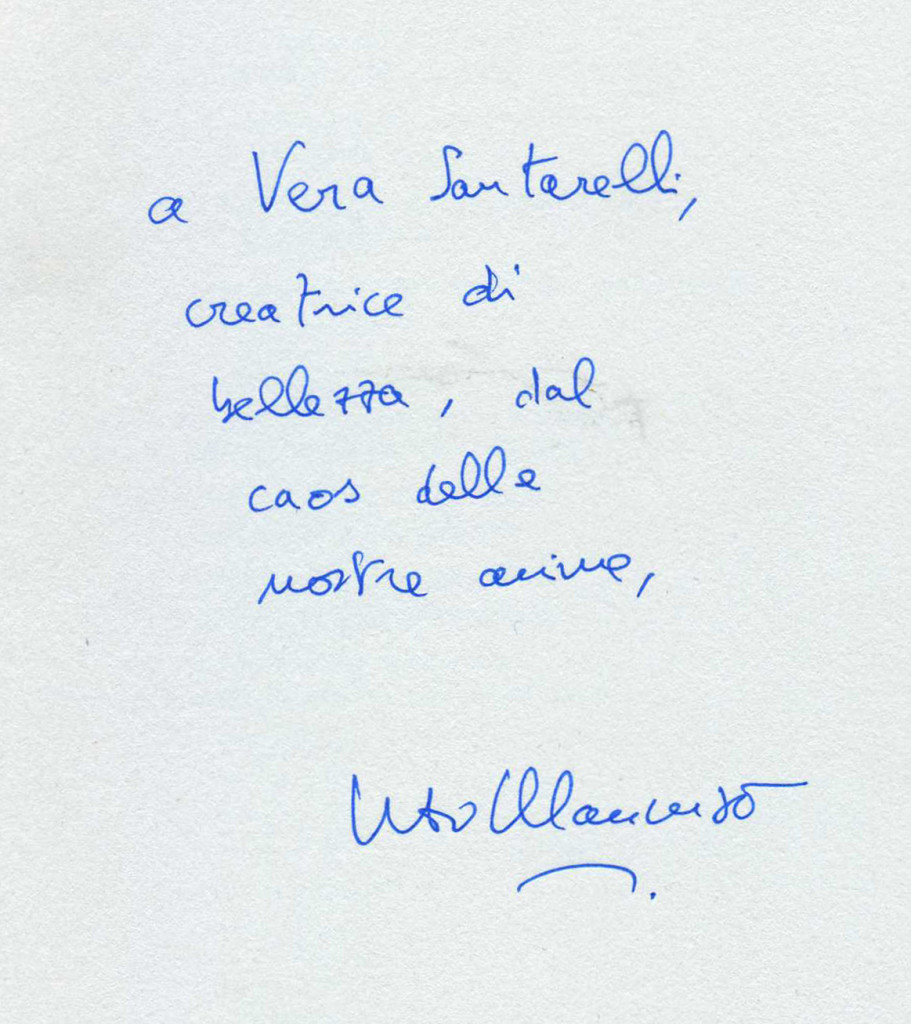 a Vera Santarelli,
creatrice di
bellezza, dal
caos delle
nostre anime,
Vito Mancuso